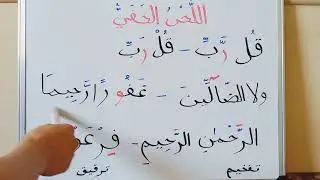 اللَّحْنُ الخَفِيُّ
قُل رَّبِّ – قُلْ رَبِّ
ولا الضَّآلِّينَ – غَفُورًا رَّحِيمًا
الرَّحْمٰنِ الرَّحِيمِ –
تفخيم ترقيق